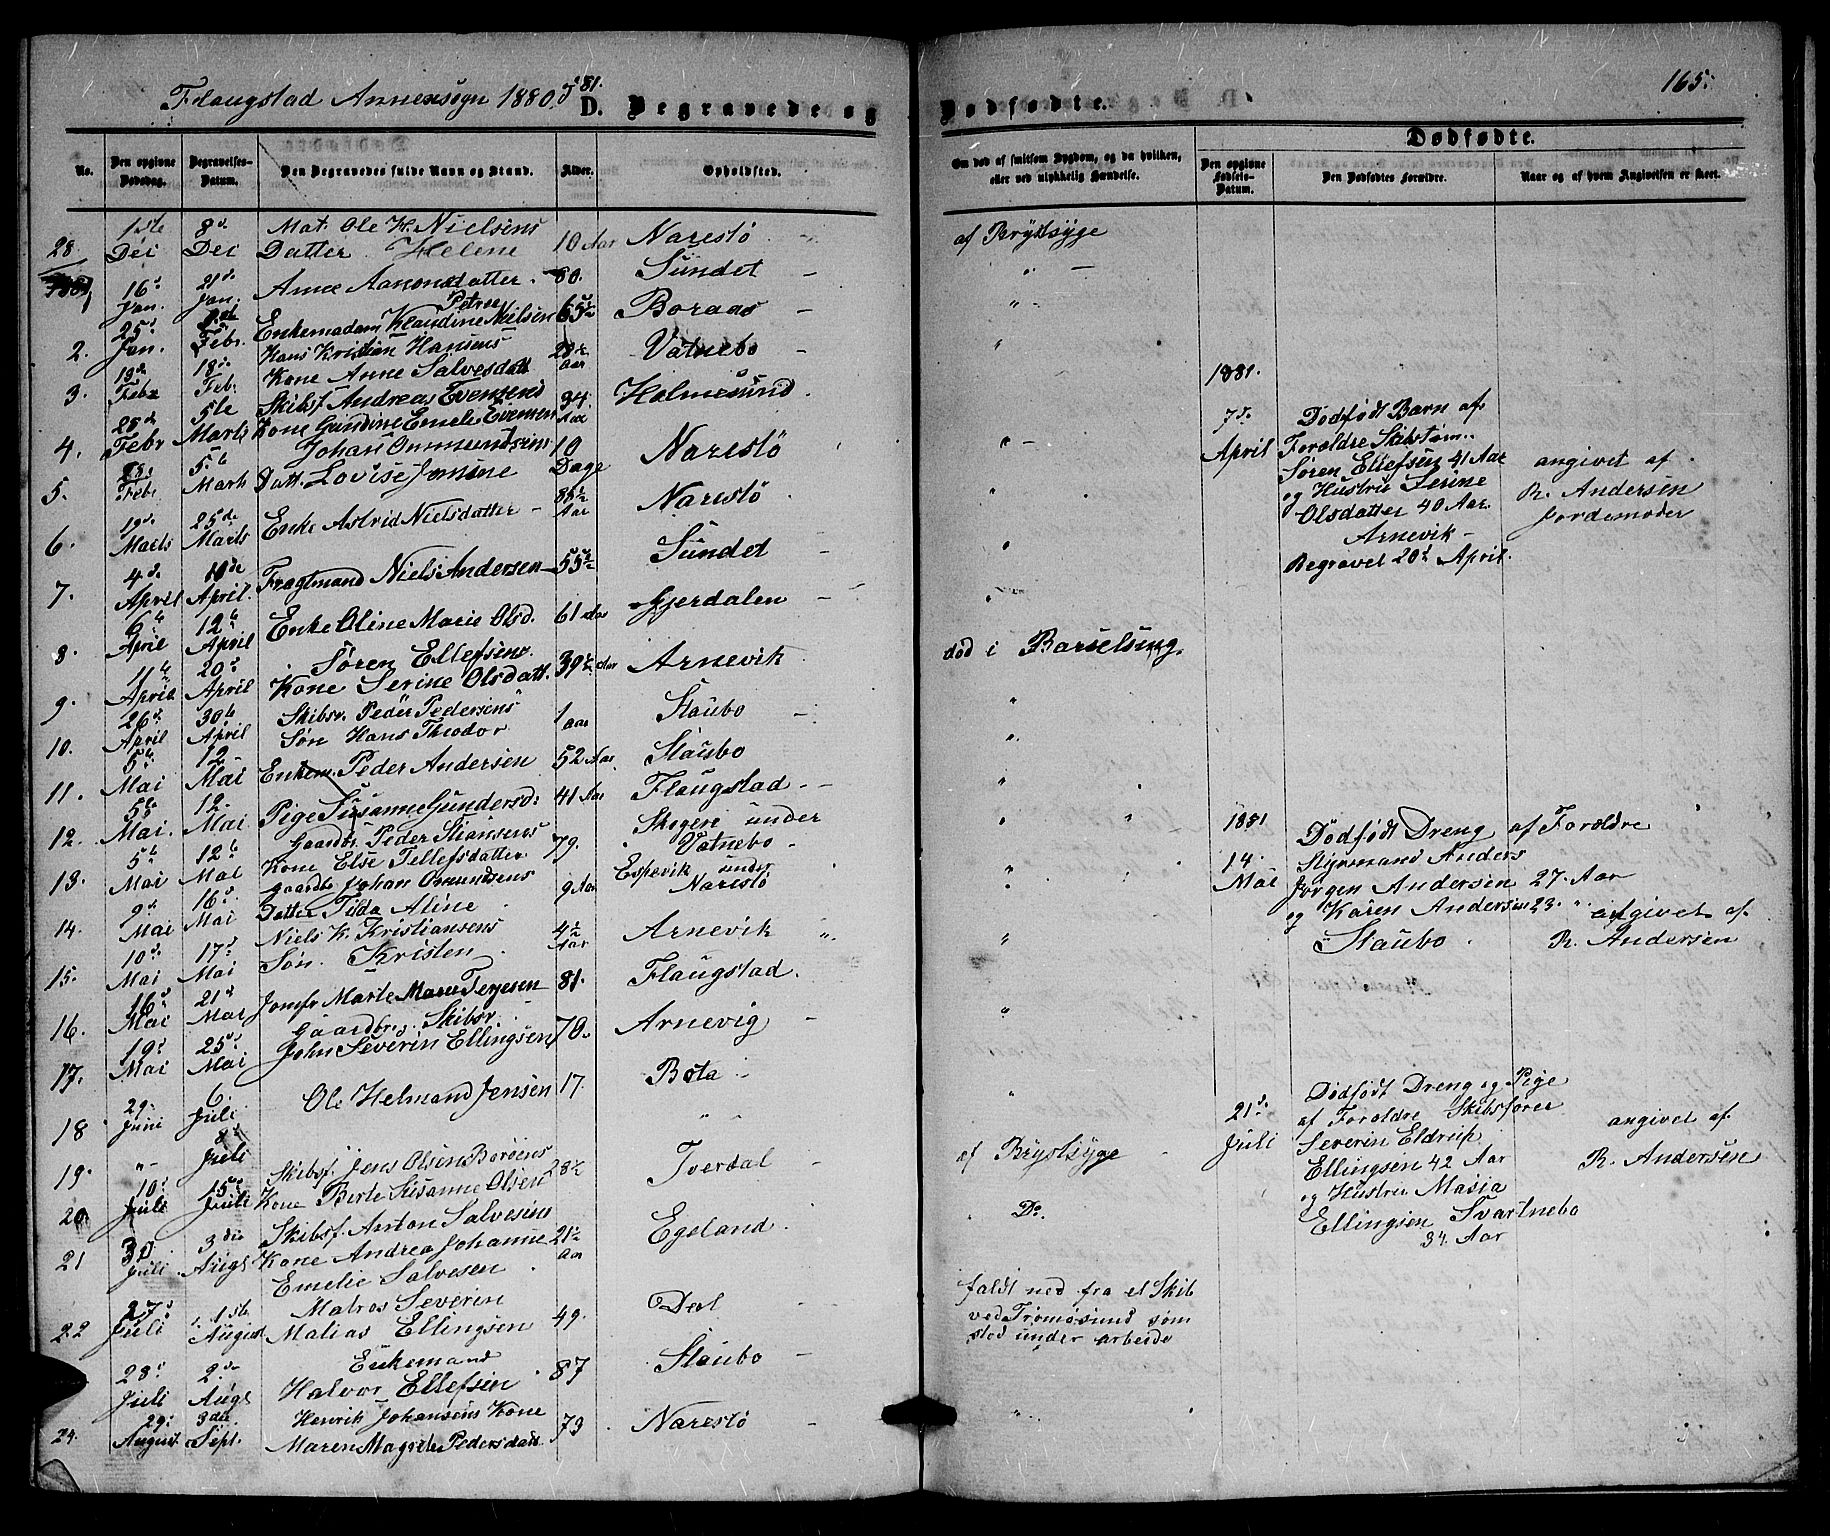 Flaugstad Annexsogn 1880 & 81.
165.
D. Begravede og
Dødfødte.
No.
Den opgivne Dødsdag.
Begravelses-Datum.
Den Begravedes fulde Navn og Stand.
Alder.
Opholdssted.
Om død af smitsom Sygdom, og da hvilken, eller ved ulykkelig Hændelse.
Dødfødte.
Den opgivne Fødsels-Datum.
Den Dødfødtes Forældre.
Naar og af hvem Angivelsen er skeet.
1ste 8d Mat. Ole H. Nielsens
28 Dei Dei Datter Helene 10 Aar Narestö af Brystsyge
1881
1 16d Jan. 21d Jan. Anne Aanonsdatter 80. Sundet -
25d Jan. Febr. Petrea
2. Enkemadam Klaudine Nielsen 65½ Boraas -
Hans Kristian Hansens
3. 19de Feb. 18d Feb. Kone Anne Salvesdatt 28½ Aar Vatnebo -
Skibsf. Andreas Evensens
4. 25d Febr 5te Marts Kone Gundine Emelie Evensen 34 Aar Holmesund.
Johan Onmundsens
5. 28. Feb. 5te Marts Datt. Lovise Jomine 10 Dage Narestö
6. 19d. Marts 25de Marts Enke Astrid Nielsdatter - 86½ Aar Narestö
7. 4d. April 10de April. Fragtmand Niels Andersen 55½ Sundet -
8. 6te April 12te April Enke Oline Marie Olsd. 61 Aar Gjerdalen -
Søren Ellefsens
9. 11te April 20d April Kone Serine Olsdatt. 39½ Aar Arnevik død i Barselsing.
Skibsr. Peder Pedersens
10. 26d April 30te April Søn Hans Theodor 1 aar Staubo -
11. 5te Mai 12 Mai Enkem. Peder Andersen 52 Aar Staubo
12. 5te Mai. 12. Mai Pige Susanne Gundersd. 41 Aar Flaugstad -
Gaardbr. Peder Stiansens Skogene under
13. 5te Mai 12te Mai Kone Else Tellefsdatter 79. Vatnebo -
Gaardb Johan Omundsens Espevik under
14. 9d Mai 16d. Mai Datter Tilda Aline 9 Aar Narestö
Niels K. Kristiansens
15. 10d. Mai 17d. Mai Søn. Kristen 4½ Aar Arnevik
16. 16d Mai 21d Mai Jomfr Marte Maria Terjesen 81. Flaugstad.
Gaardbr. Skibsr.
17. 19d Mai 25d Mai John Severin Ellingsen 70. Arnevig -
18 29. Juni 6. Juli Ole Helmand Jensen 17. Bota -
8d Juli
19. Skibsf. Jens Olsen Borøens
20. 10d Juli 15d Juli Kone Berte Susanne Olsen 28½ Tverdal - af Brystsyge
Skibsf. Anton Salvesens
21 30 Juli 3die Augs Kone Andrea Johanne 21½ Aar Egeland. Do.
Emelie Salvesen
Matros Severin
22 27d Juli 1ste August Matias Ellingsen 49. Dal faldt ned fra et Skib
ved Tromøsund som
stod under arbeide
Enkemand
28d Juli 2de Augs Halvor Ellefsen 87 Staubo -
Henrik Johansens Kone
24. 29. August 3die Sept. Maren Magrete Pedersdatt 73 Narestö -
1881.
7d. April
Dødfødt Barn af
Foroldre Skibstøm.
Søren Ellefsen 41 Aar
og Hustru Serine
Olsdatter 40 Aar.
Arnevik -
Begravet 20d April.
angivet af
R. Andersen
Jordemoder
1881
14. Mai
Dødfødt Dreng af Foroldre
Styrmand Anders
Jørgen Andersen 27. Aar
og Karen Andersen 23. "
Staubo.
angivet af
R. Andersen
21d. Juli
Dødfødt Dreng og Pige
af Foroldre Skibsfører
Severin Eldrup
Ellingsen 42 Aar
og Hustru Masia
Ellingsen Svartnebo
34. Aar
angivet af
R. Andersen